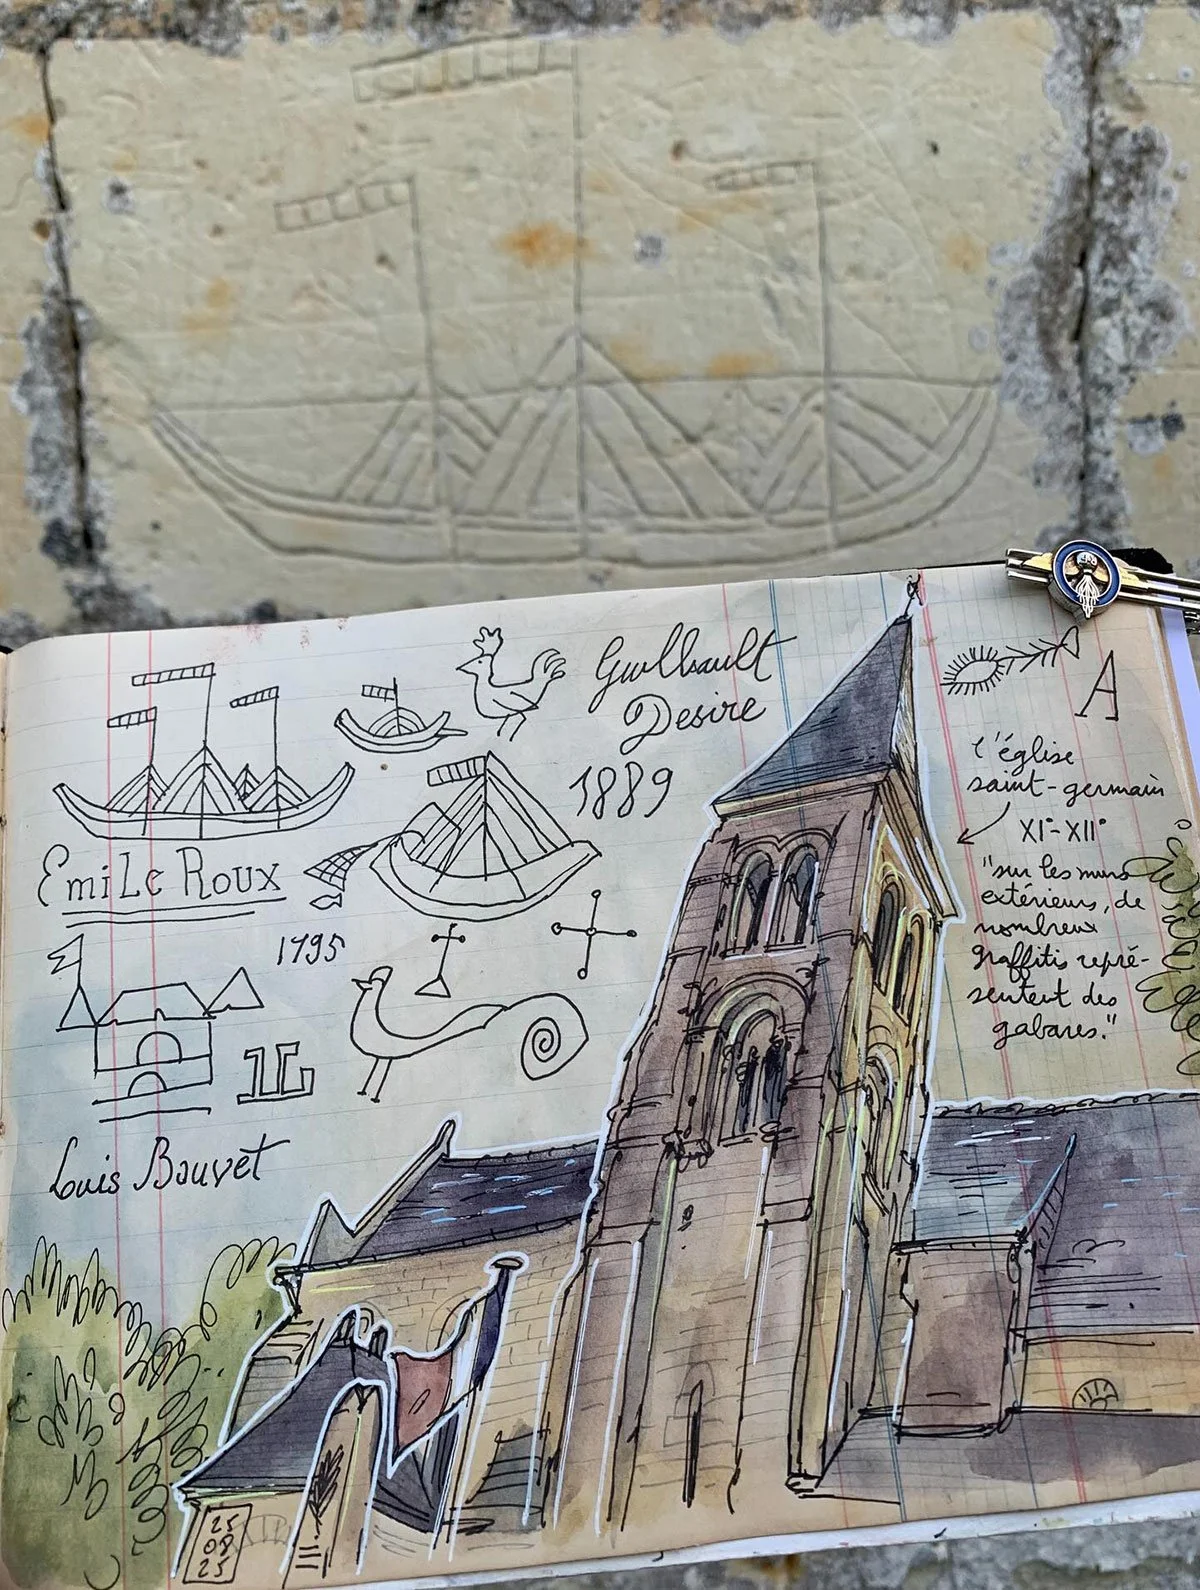 Guilbault
Desire
1889
EmiLe Roux
1795
Louis Bouvet
A
l'église
saint-germain
XI°-XII°
"sur les murs
extérieurs, de
nombreux
graffitis repré-
sentent des
gabares."
25
08
25